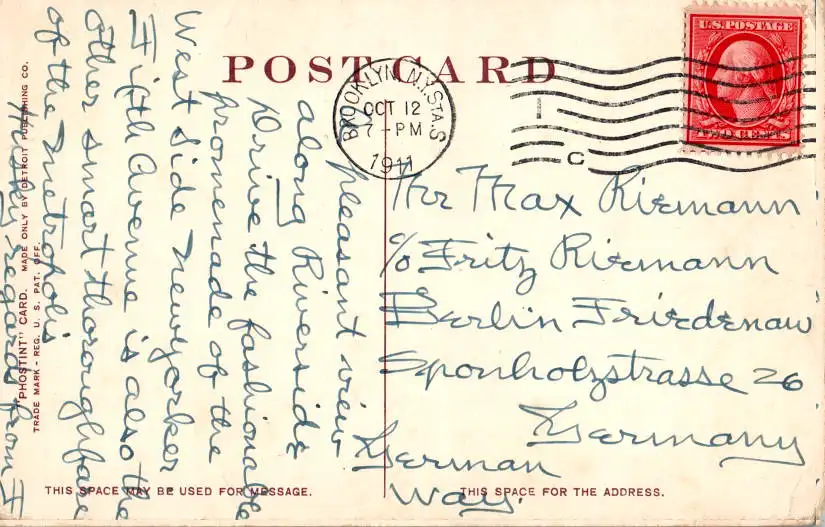 POST CARD
U.S. POSTAGE
TWO CENTS
BROOKLYN, N.Y. STA. S
OCT 12
7-PM
1911
C
pleasant view
along Riverside
Drive the fashionable
promenade of the
West Side Newyorker.
Fifth Avenue is also the
other smart thoroughfare
of the Metropolis
regards from F
Mr Max Riemann
c/o Fritz Riemann
Berlin Friedenau
Sponholzstrasse 26
Germany
German
Way.
"PHOSTINT" CARD. MADE ONLY BY DETROIT PUBLISHING CO.
TRADE MARK - REG. U. S. PAT. OFF.
THIS SPACE MAY BE USED FOR MESSAGE.
THIS SPACE FOR THE ADDRESS.